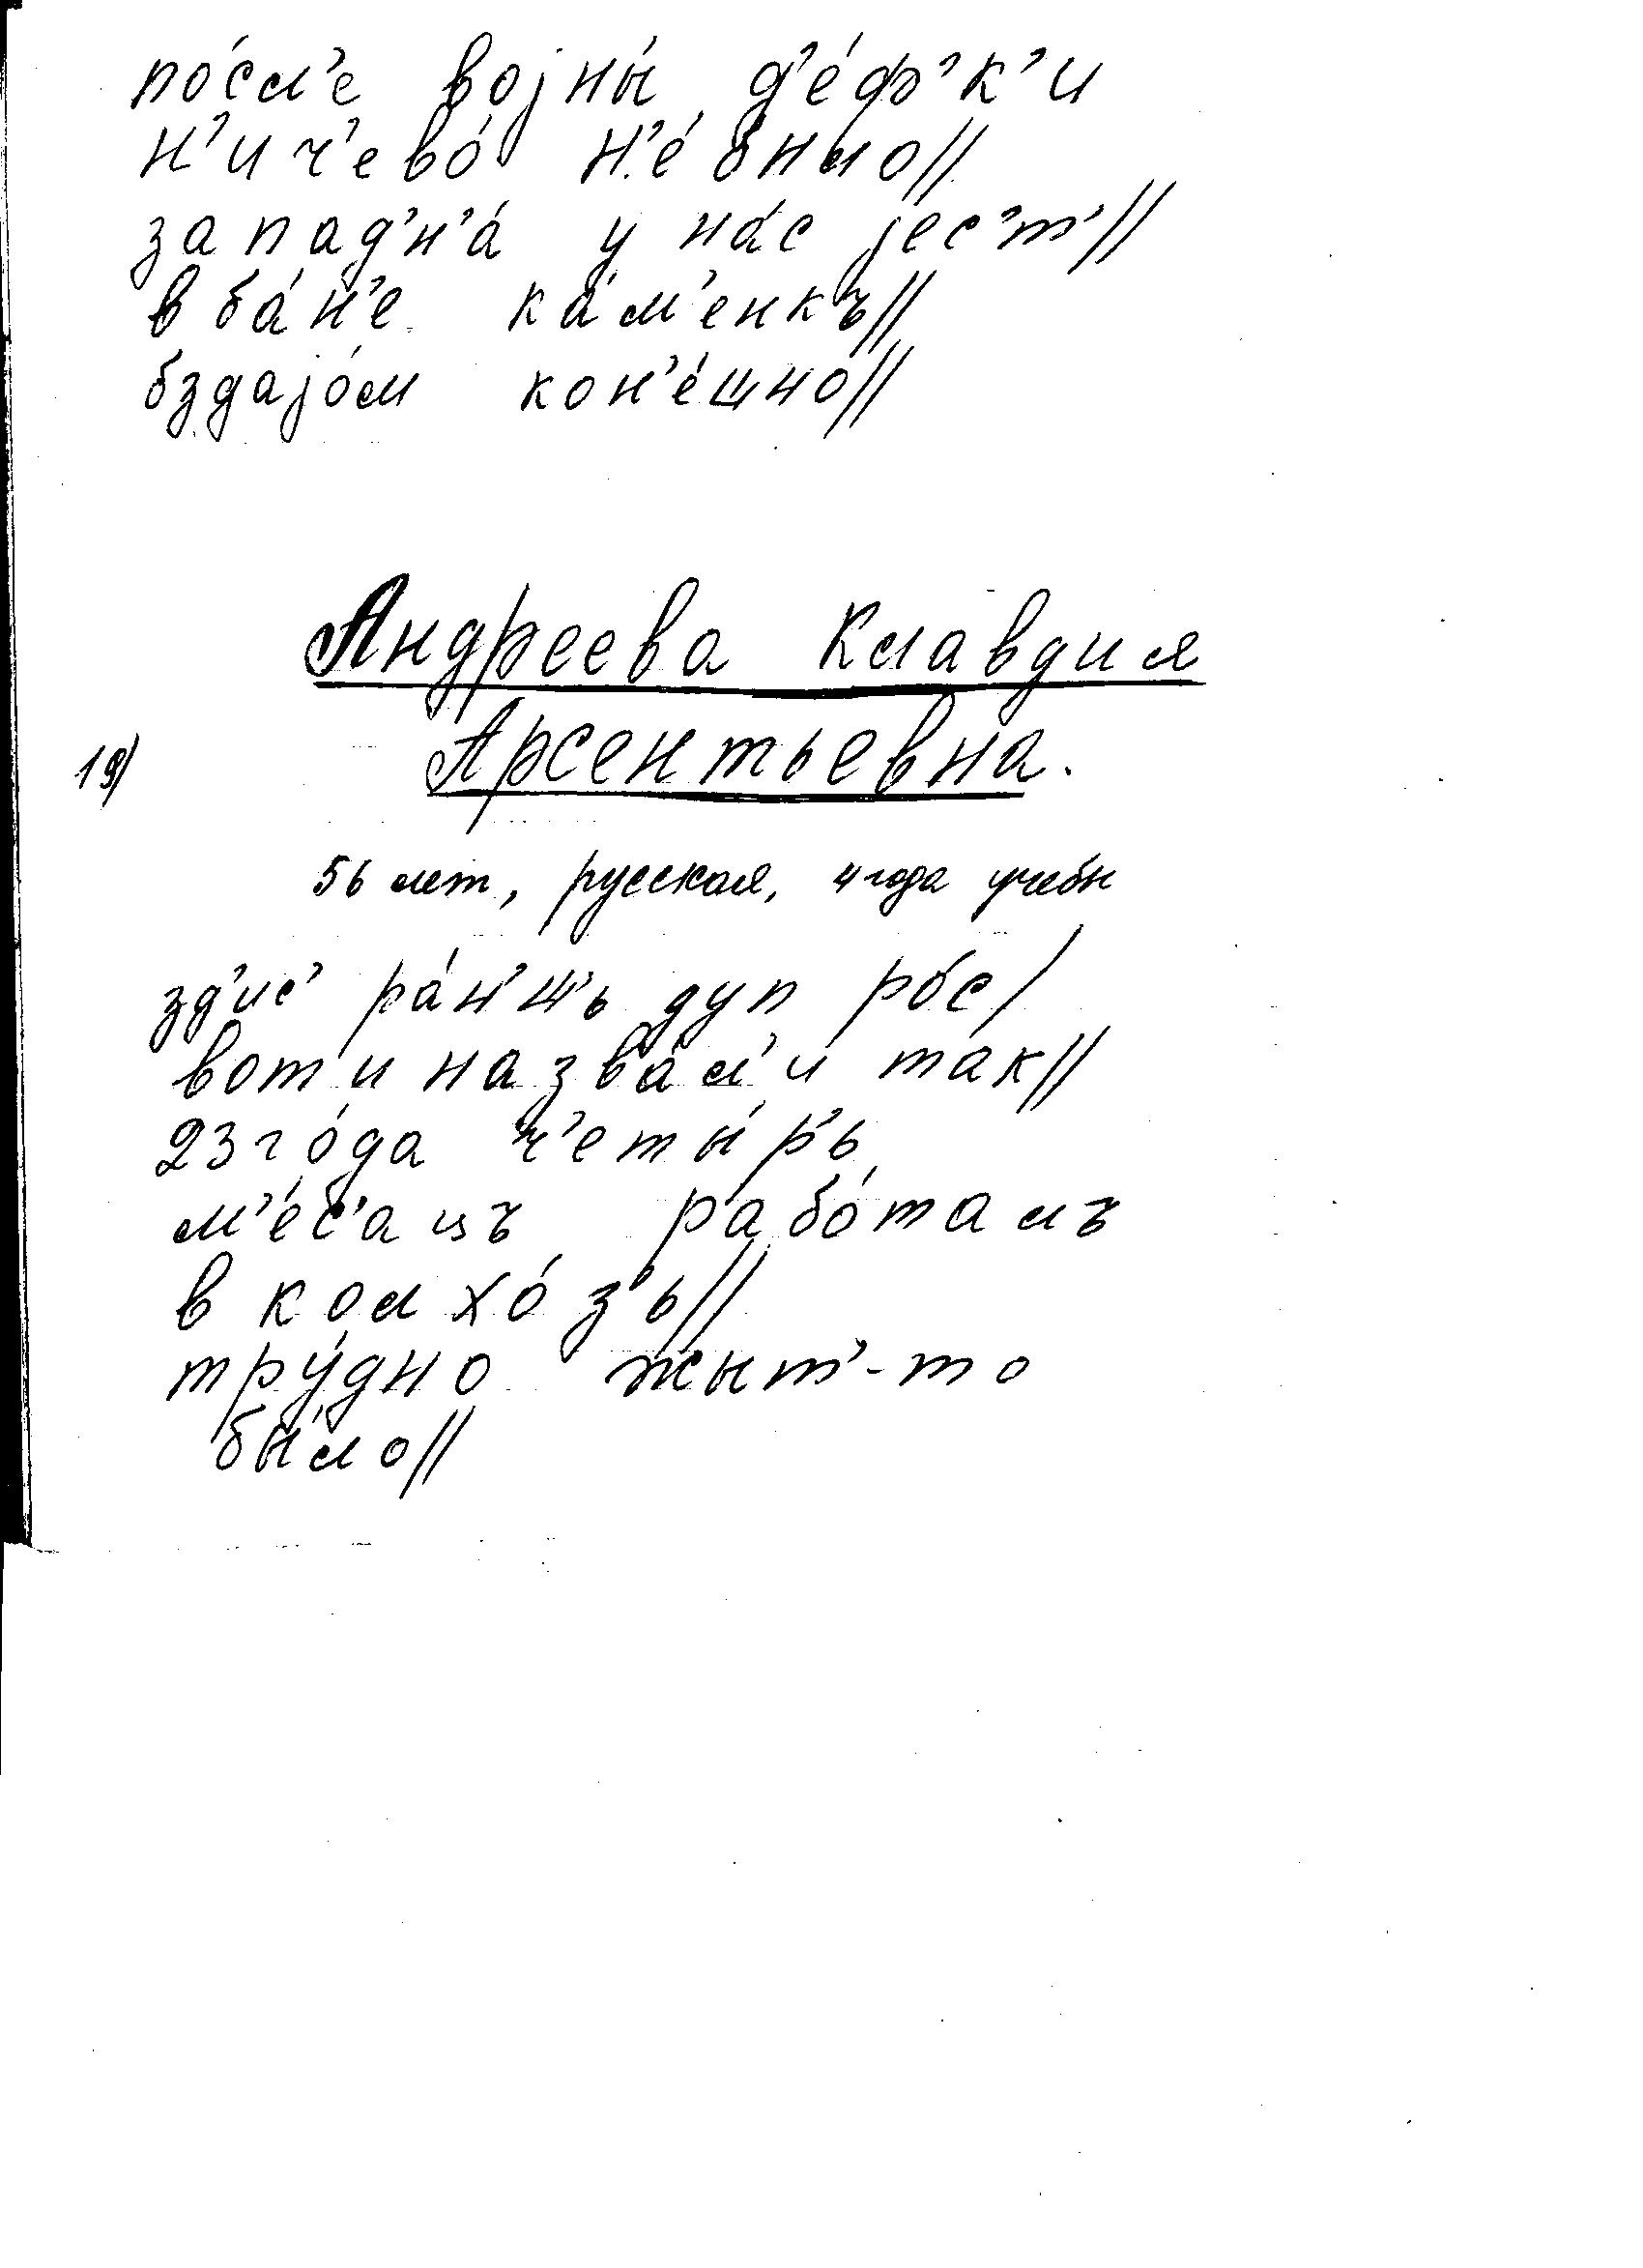 по́сл'е војны́ д'е́ф'к'и
н'ич'ево́ н'е́ было//
запад'н'а́ у на́с јес'т'//
в ба́н'е ка́м'енкъ//
бздајо́м кон'е́шно//
Андреева Клавдия
19) Арсентьевна.
56 лет, русская, 4 года учебы
зд'ис' ра́н'ш'ь дуп ро́с/
вот и назва́л'и так//
23 го́да ч'еты́р'ь
м'е́с'ацъ рабо́талъ
в колхо́з'ь//
тру́дно жыт'-то
бы́ло//